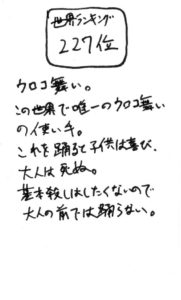 世界ランキング
227位
ウロコ舞い。
この世界で唯一のウロコ舞い
の使い手。
これを踊ると子供は喜び、
大人は死ぬ。
基本殺しはしたくないので
大人の前では踊らない。